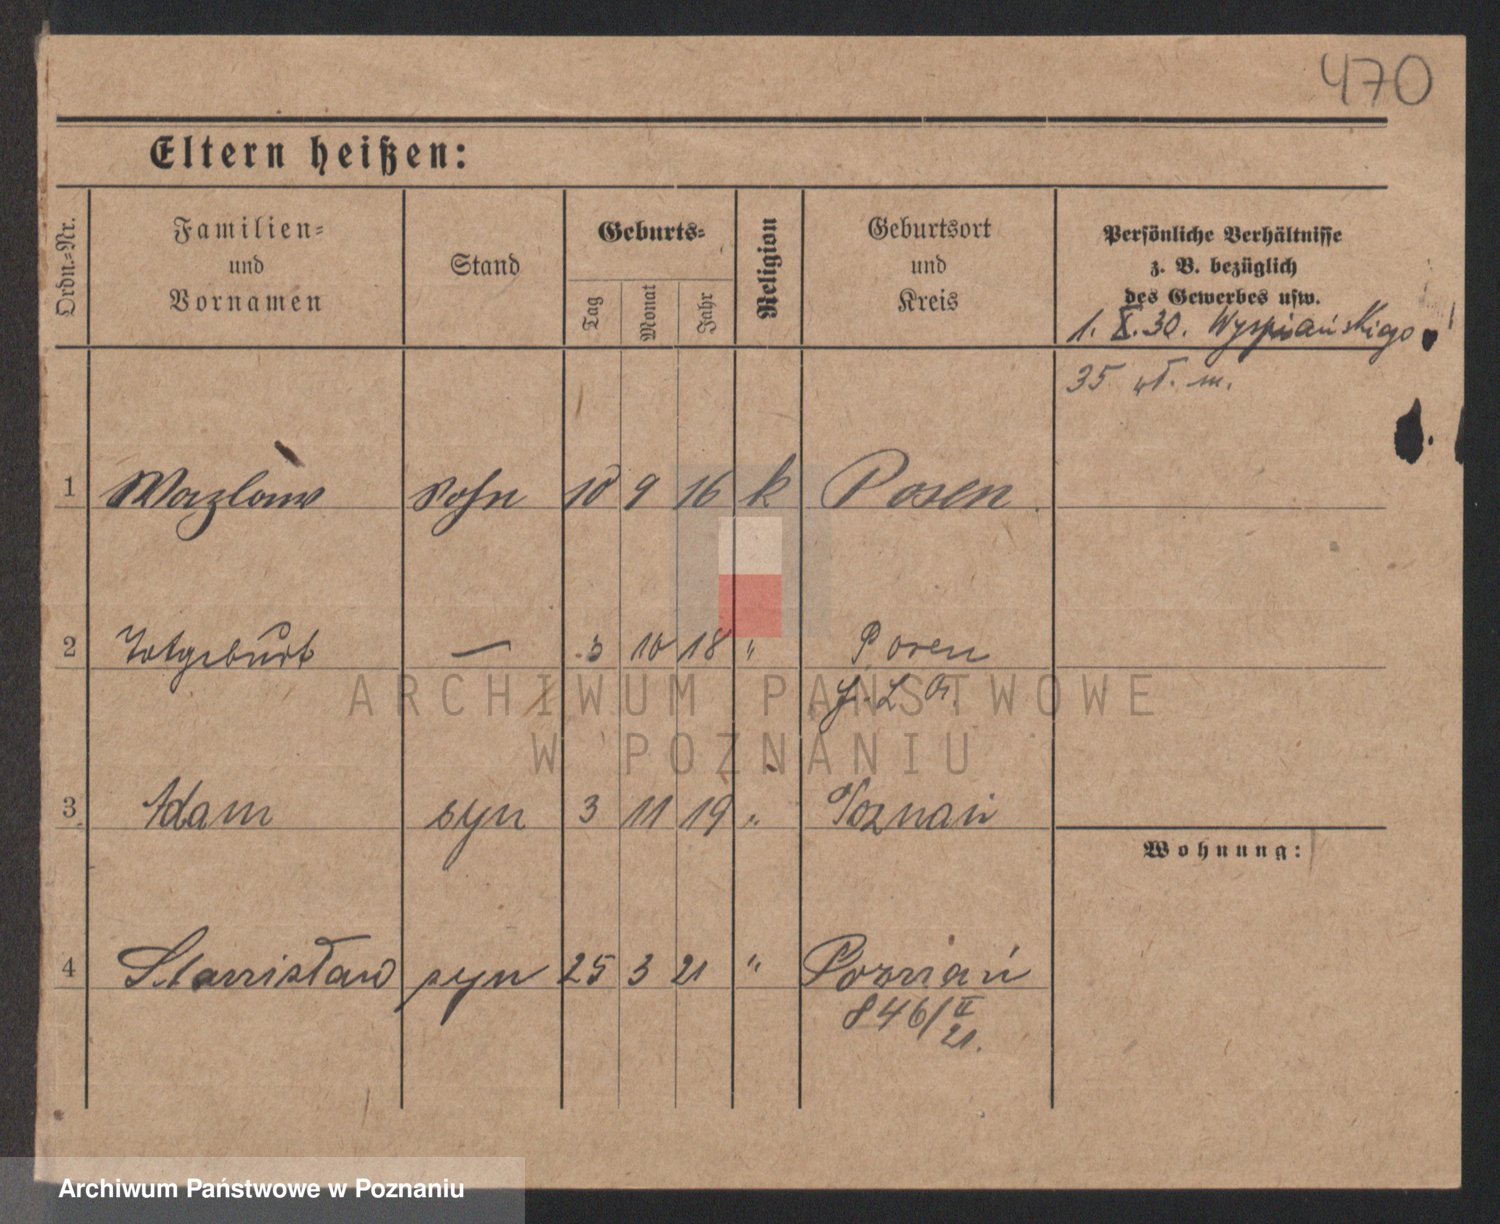 470
Eltern heißen:
Ordn.=Nr.
Familien=
und
Vornamen
Stand
Geburts=
Tag
Monat
Jahr
Religion
Geburtsort
und
Kreis
Persönliche Verhältnisse
z. B. bezüglich
des Gewerbes usw.
1. X. 30. Wyspiańskiego
35 m.
1 Wazlaw Sohn 10 9 16 k Posen
2 Totgeburt — 3 10 18 " Posen
ARCHIWUM PAŃSTWOWE
W POZNANIU
3 Adam syn 3 11 19 " Poznań
Wohnung:
4 Stanisław syn 25 3 21 " Poznań
846/II
21.
Archiwum Państwowe w Poznaniu